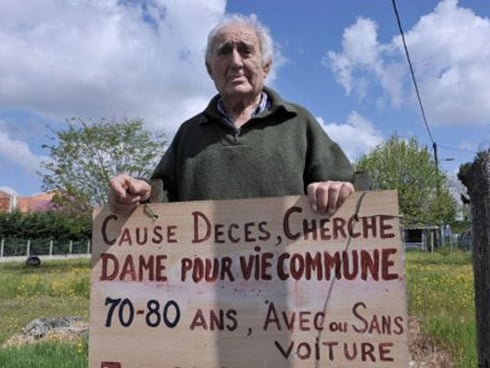 CAUSE DECES, CHERCHE
DAME POUR VIE COMMUNE
70-80 ANS, AVEC OU SANS
VOITURE